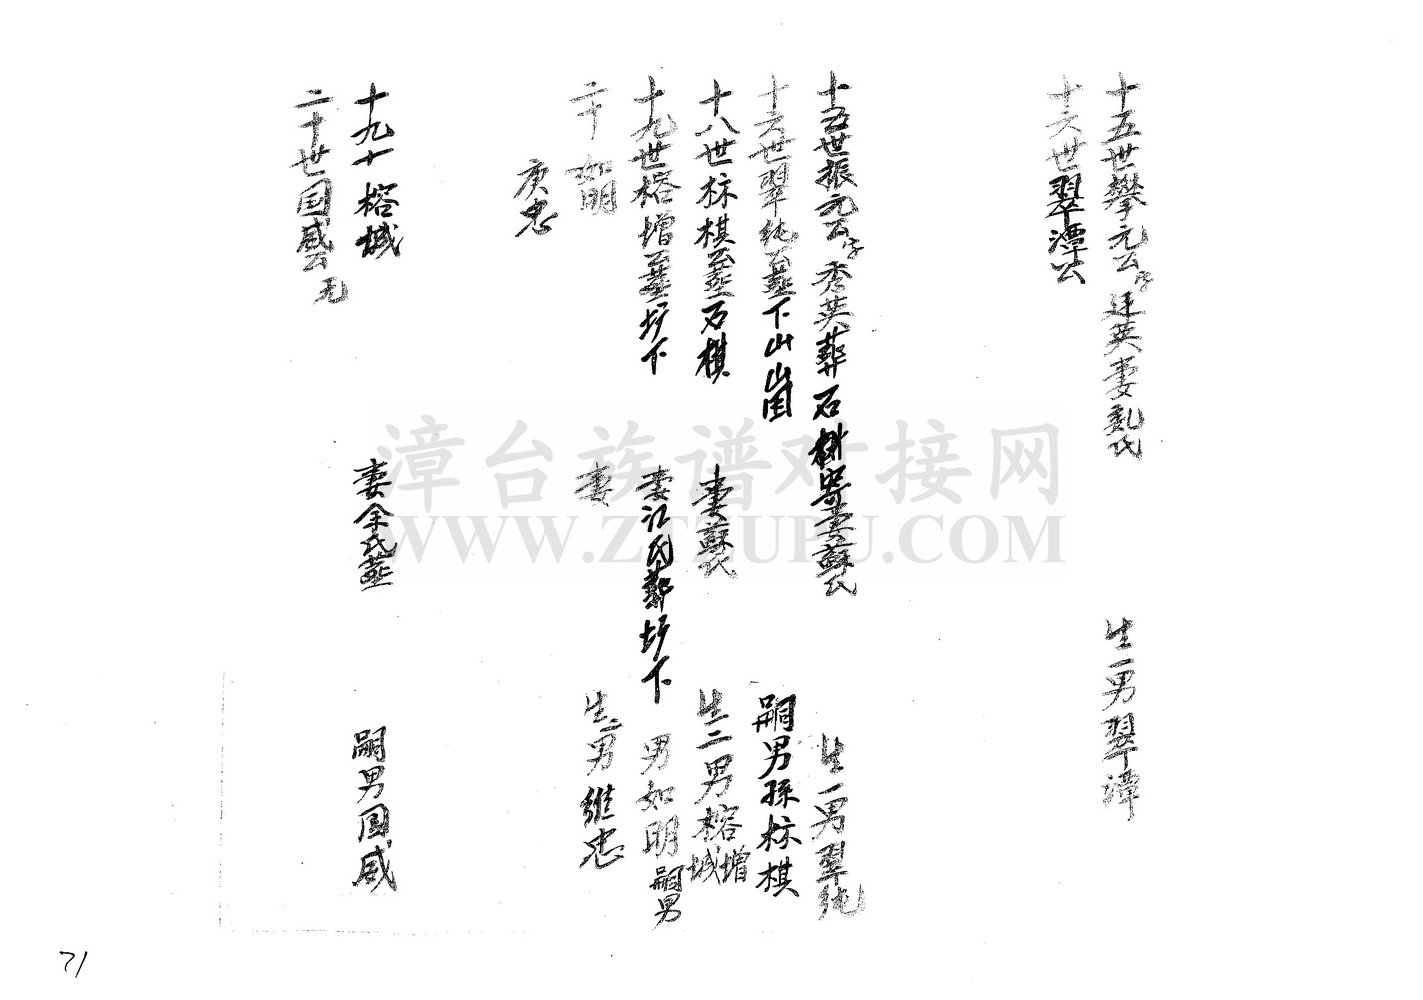 十五世攀元公字廷英妻乱氏 生一男翠漳
十六世翠潭公
十五世振元公字秀英葬石树寄妻蘇氏 生一男翠纯
十六世翠纯公塟下山崗 嗣男孫标棋
十八世标棋公塟石棋 妻蘇氏 生二男榕增城
十九世榕增公塟圹下 妻江氏葬圹下 男如明嗣男
二十如明 妻 生二男維忠
庚忠
十九十榕城 妻余氏塟 嗣男国盛
二十世国盛公无
漳台族谱对接网
WWW.ZTZUPU.COM
71